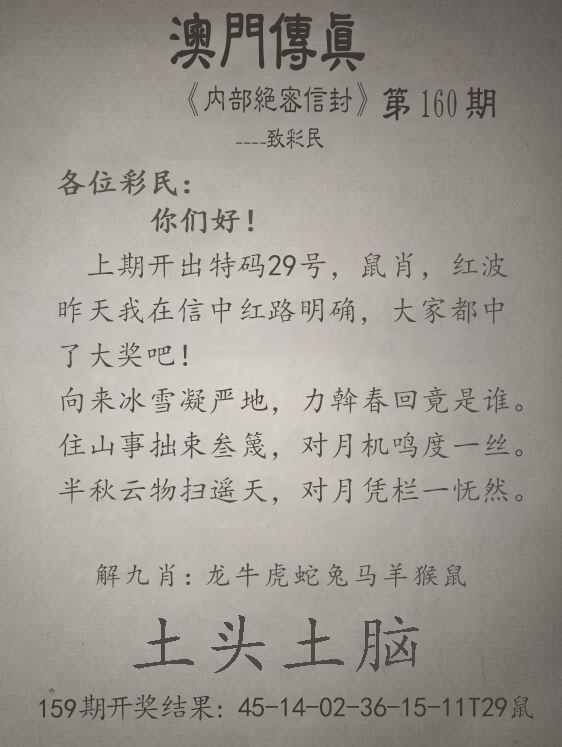 澳門傳眞
《内部絕密信封》第160期
----致彩民
各位彩民：
你们好！
上期开出特码29号，鼠肖，红波
昨天我在信中红路明确，大家都中
了大奖吧！
向来冰雪凝严地，力斡春回竟是谁。
住山事拙束叁篾，对月机鸣度一丝。
半秋云物扫遥天，对月凭栏一怃然。
解九肖：龙牛虎蛇兔马羊猴鼠
土头土脑
159期开奖结果：45-14-02-36-15-11T29鼠